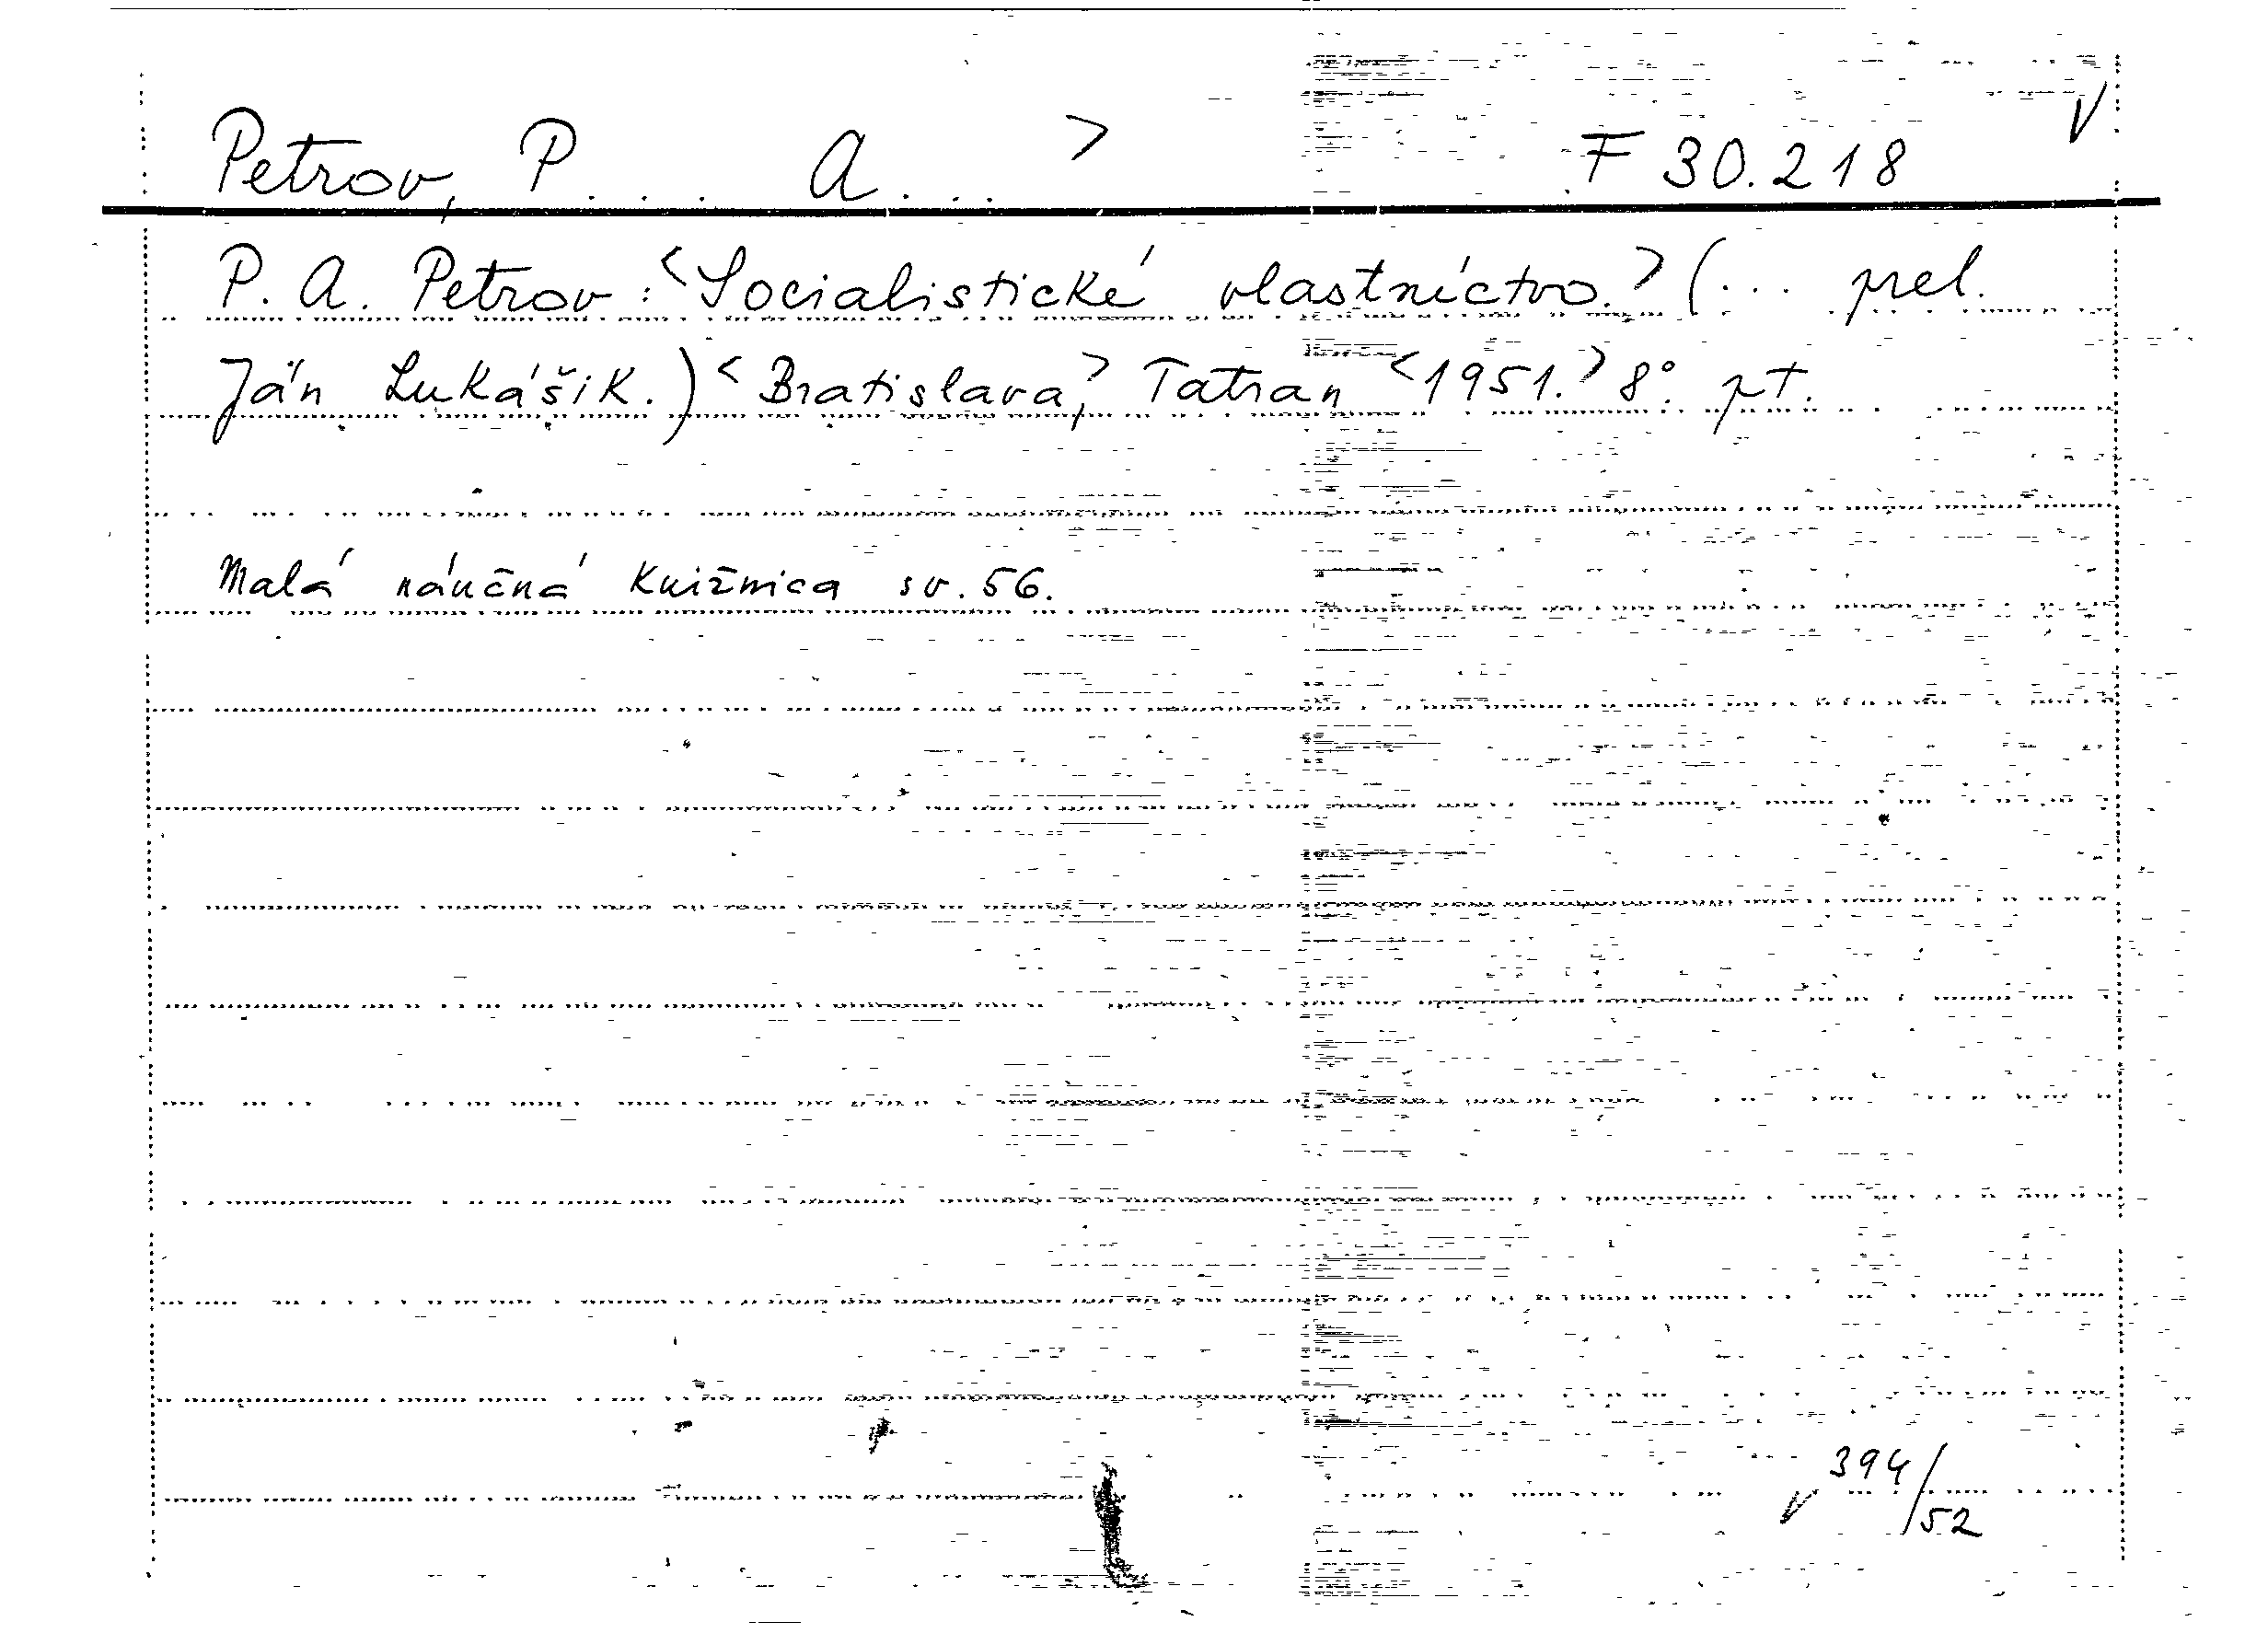 Petrov, P... A...> F 30.218 V
P. A. Petrov: <Socialistické vlastníctvo.> (... prel.
Ján Lukášik.) <Bratislava,> Tatran <1951.> 8°. pt.
Malá náučná knižnica sv. 56.
V 394/52